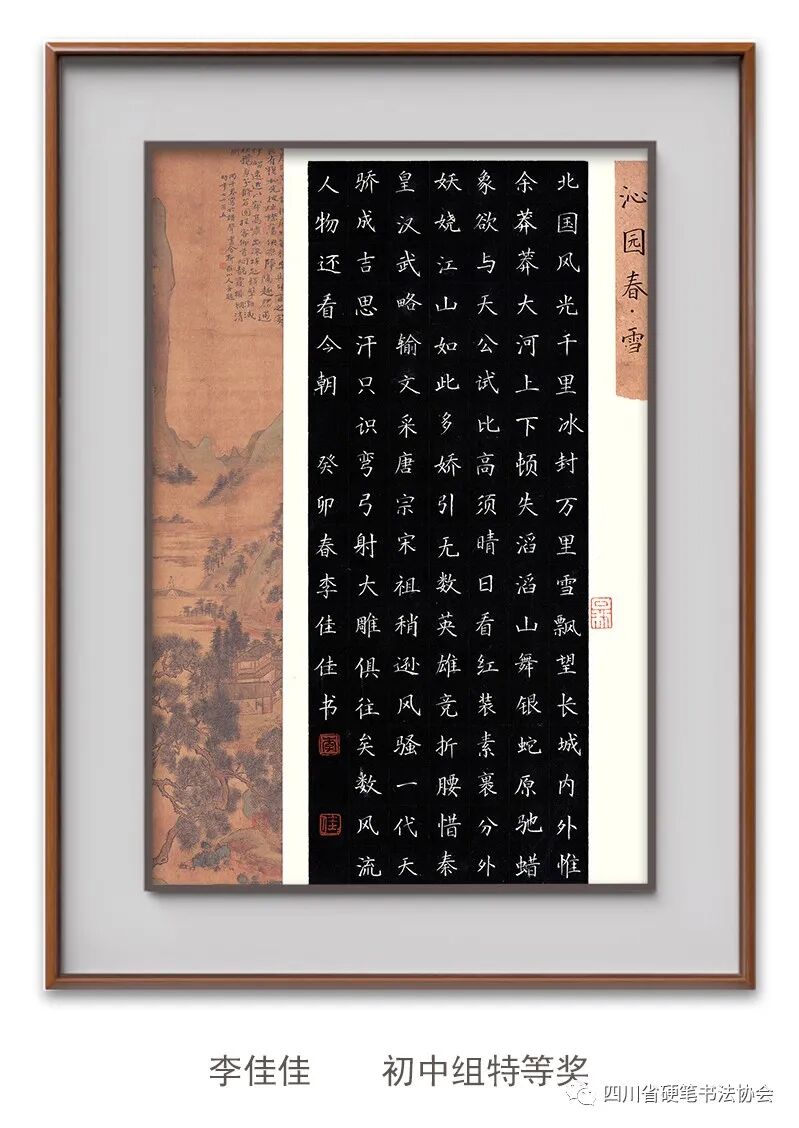 沁园春·雪
北国风光千里冰封万里雪飘望长城内外惟
余莽莽大河上下顿失滔滔山舞银蛇原驰蜡
象欲与天公试比高须晴日看红装素裹分外
妖娆江山如此多娇引无数英雄竞折腰惜秦
皇汉武略输文采唐宗宋祖稍逊风骚一代天
骄成吉思汗只识弯弓射大雕俱往矣数风流
人物还看今朝 癸卯春李佳佳书
佳
李佳佳 初中组特等奖
四川省硬笔书法协会